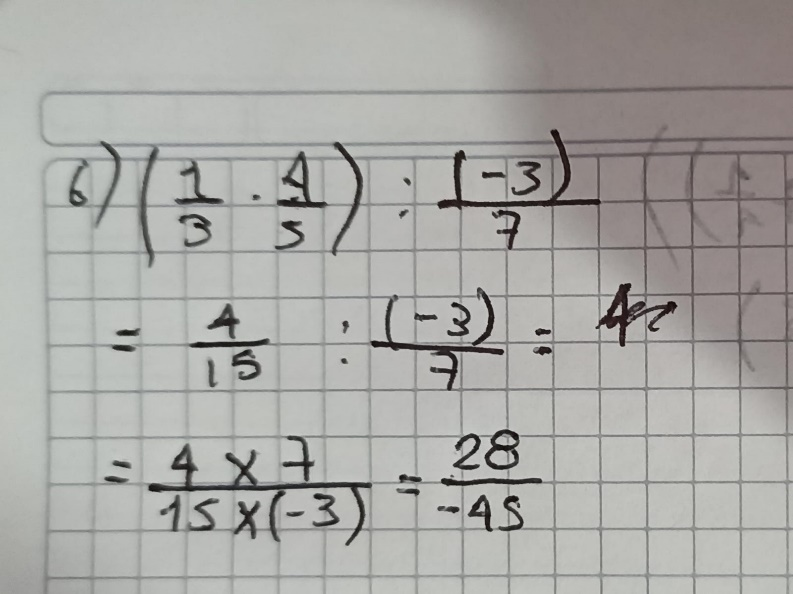 6) (1/3 · 4/5) : (-3)/7
= 4/15 : (-3)/7 =
= 4 x 7/15 x (-3) = 28/-45